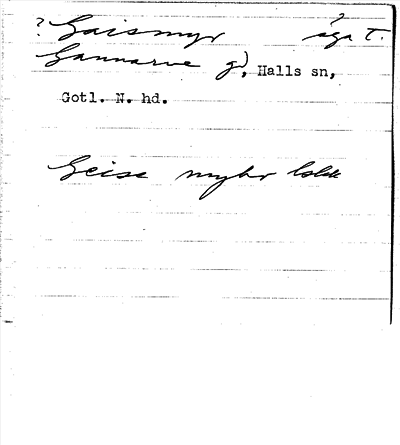 ? Gaismyr ? äga t.
Gannarve gd, Halls sn,
Gotl. N. hd.
Geise myhr